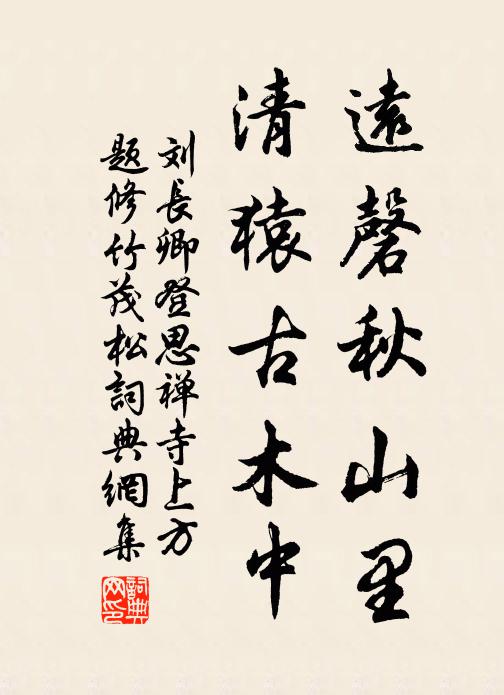 遠磬秋山里
清猿古木中
刘長卿登思禅寺上方
题修竹茂松詞典網集
詞典网印